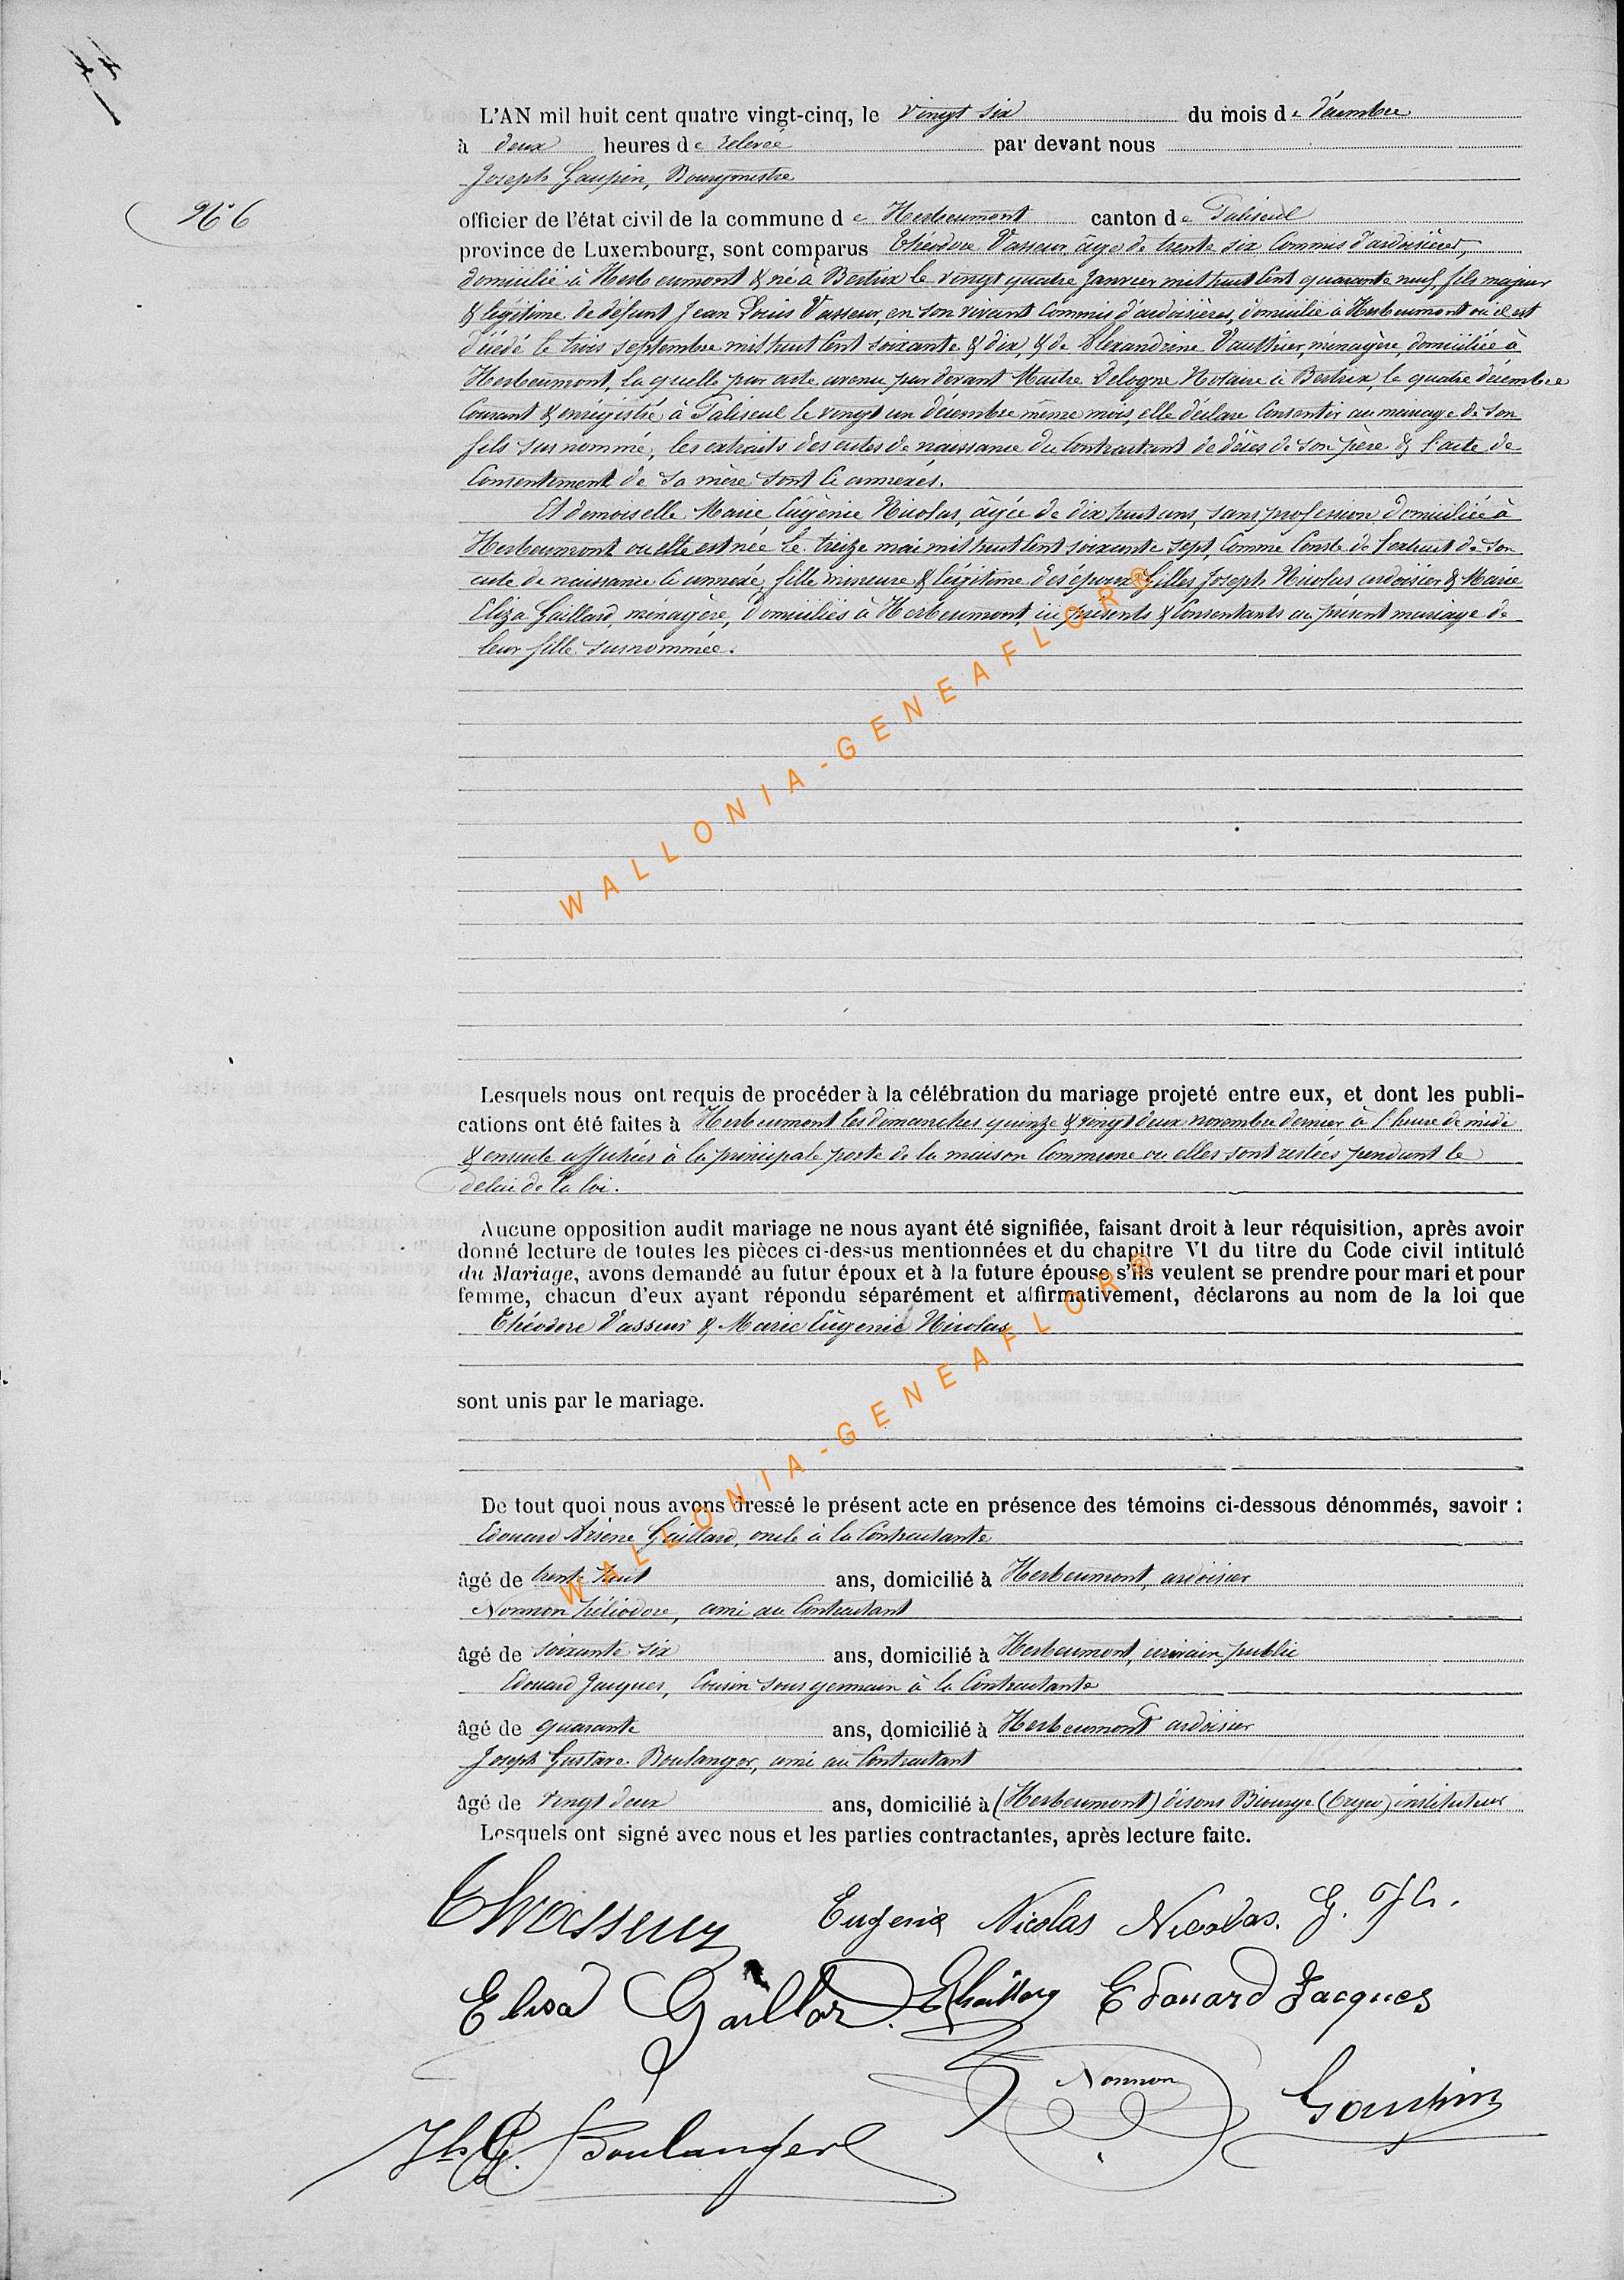 L'AN mil huit cent quatre vingt-cinq, le vingt six du mois de décembre
à deux heures de relevée par devant nous
Joseph Gaupin, Bourgmestre
N° 6
officier de l'état civil de la commune de Herbeumont canton de Paliseul
province de Luxembourg, sont comparus Théodore Vasseur, âge de trente six Commis d'ardoisières,
domicilié à Herbeumont & né à Bertrix le vingt quatre Janvier mil huit Cent quarante neuf, fils majeur
& légitime de défunt Jean Louis Vasseur, en son vivant Commis d'ardoisières, domicilié à Herbeumont où il est
décédé le trois septembre mil huit Cent soixante & dix, & de Alexandrine Vauthier, ménagère, domiciliée à
Herbeumont, la quelle par acte avenu par devant Maître Delogne Notaire à Bertrix, le quatre décembre
Courant & enrégistré à Paliseul le vingt un décembre même mois, elle déclare Consentir au mariage de son
fils sus nommé, les extraits des actes de naissance du Contractant de décès de son père & l'acte de
Consentement de sa mère sont ci annexés.
Et demoiselle Marie Eugènie Nicolas, âgée de dix huit ans, sans profession domiciliée à
Herbeumont ou elle est née le treize mai mil huit Cent soixante sept, Comme Conste de l'extrait de son
acte de naissance ci annexé, fille mineure & légitime des époux Gilles Joseph Nicolas ardoisier & Marie
Eliza Gaillard, ménagère, domiciliés à Herbeumont, ici présents & Consentants au présent mariage de
leur fille susnommée.
WALLONIA-GENEAFLOR®
Lesquels nous ont requis de procéder à la célébration du mariage projeté entre eux, et dont les publi-
cations ont été faites à Herbeumont les dimanches quinze & vingt deux novembre dernier à l'heure de midi
& ensuite affichées à la principale porte de la maison Commune ou elles sont restées pendant le
delai de la loi.
Aucune opposition audit mariage ne nous ayant été signifiée, faisant droit à leur réquisition, après avoir
donné lecture de toutes les pièces ci-dessus mentionnées et du chapitre VI du titre du Code civil intitulé
du Mariage, avons demandé au futur époux et à la future épouse s'ils veulent se prendre pour mari et pour
femme, chacun d'eux ayant répondu séparément et affirmativement, déclarons au nom de la loi que
Théodore Vasseur & Marie Eugènie Nicolas
sont unis par le mariage.
WALLONIA-GENEAFLOR®
De tout quoi nous avons dressé le présent acte en présence des témoins ci-dessous dénommés, savoir :
Edouard Arsène Gaillard, oncle à la Contractante
âgé de trente huit ans, domicilié à Herbeumont, ardoisier
Nonnon héliodore, ami au Contractant
âgé de soixante six ans, domicilié à Herbeumont, écrivain public
Edouard Jacques, Cousin sous germain à la Contractante
âgé de quarante ans, domicilié à Herbeumont ardoisier
Joseph Gustave Boulanger, ami au Contractant
âgé de vingt deux ans, domicilié à (Herbeumont) disons Biourge (Orgeo) instituteur
Lesquels ont signé avec nous et les parties contractantes, après lecture faite.
Th Vasseur Eugenie Nicolas Nicolas. G. Jh.
Elisa Gaillard. E Gaillard Edouard Jacques
Nonnon Gaupin
Jh G. Boulanger